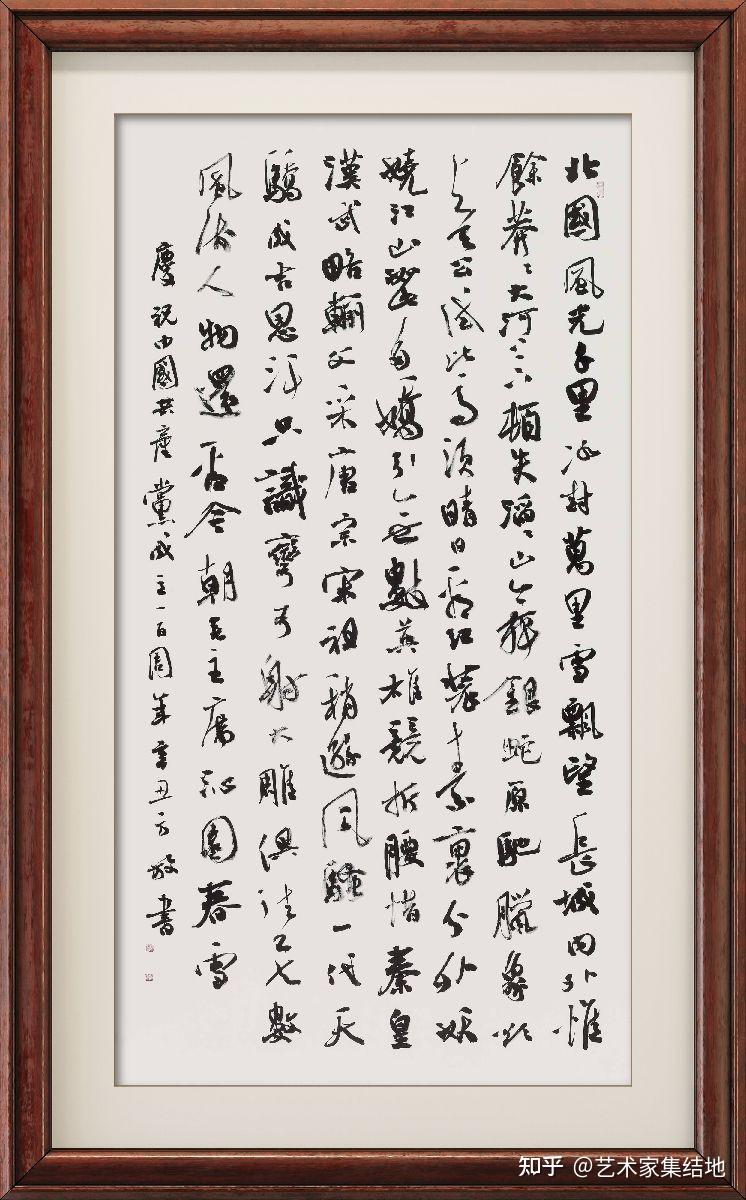 北國風光千里冰封萬里雪飄望長城内外惟
餘莽〻大河上下頓失滔〻山舞銀蛇原馳臘象欲
與天公試比高須晴日看紅裝素裹分外妖
嬈江山如此多嬌引無數英雄競折腰惜秦皇
漢武略輸文采唐宗宋祖稍遜風騷一代天
驕成吉思汗只識彎弓射大雕俱往矣數
風流人物還看今朝毛主席沁園春雪
慶祝中國共產黨成立一百周年辛丑方書
知乎 @艺术家集结地